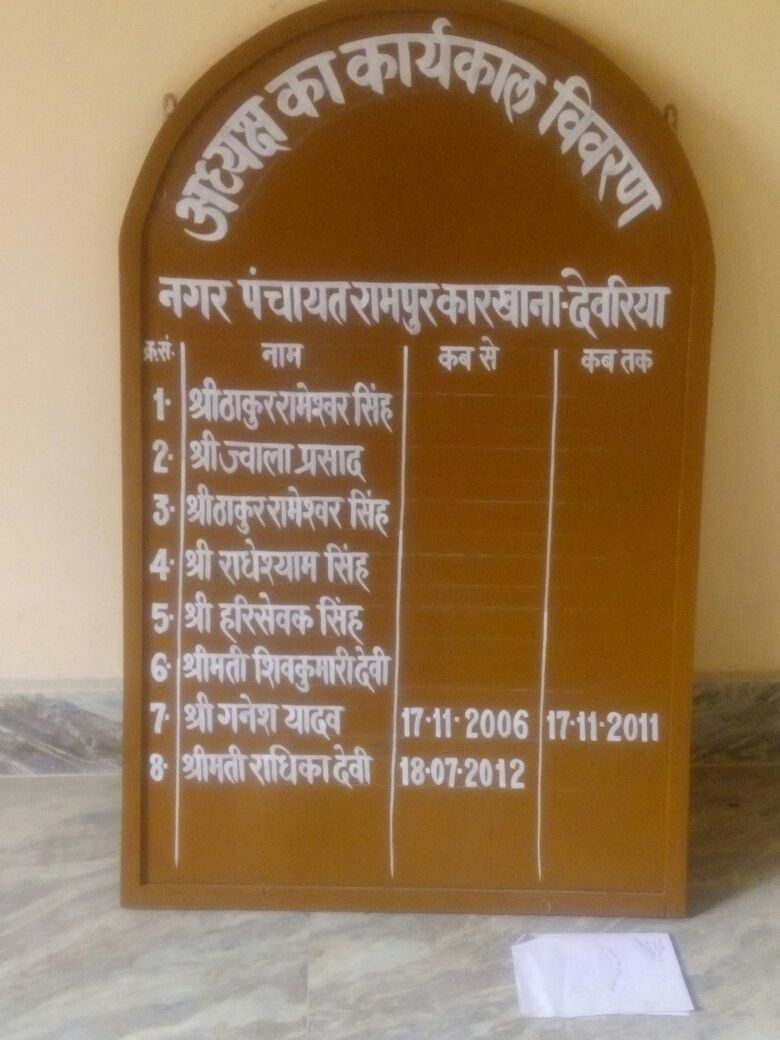 अध्यक्ष का कार्यकाल विवरण
नगर पंचायत रामपुर कारखाना-देवरिया
क्र.सं. नाम कब से कब तक
1. श्री ठाकुर रामेश्वर सिंह
2. श्री ज्वाला प्रसाद
3. श्री ठाकुर रामेश्वर सिंह
4. श्री राधेश्याम सिंह
5. श्री हरिसेवक सिंह
6. श्रीमती शिवकुमारी देवी
7. श्री गनेश यादव 17.11.2006 17.11.2011
8. श्रीमती राधिका देवी 18.07.2012